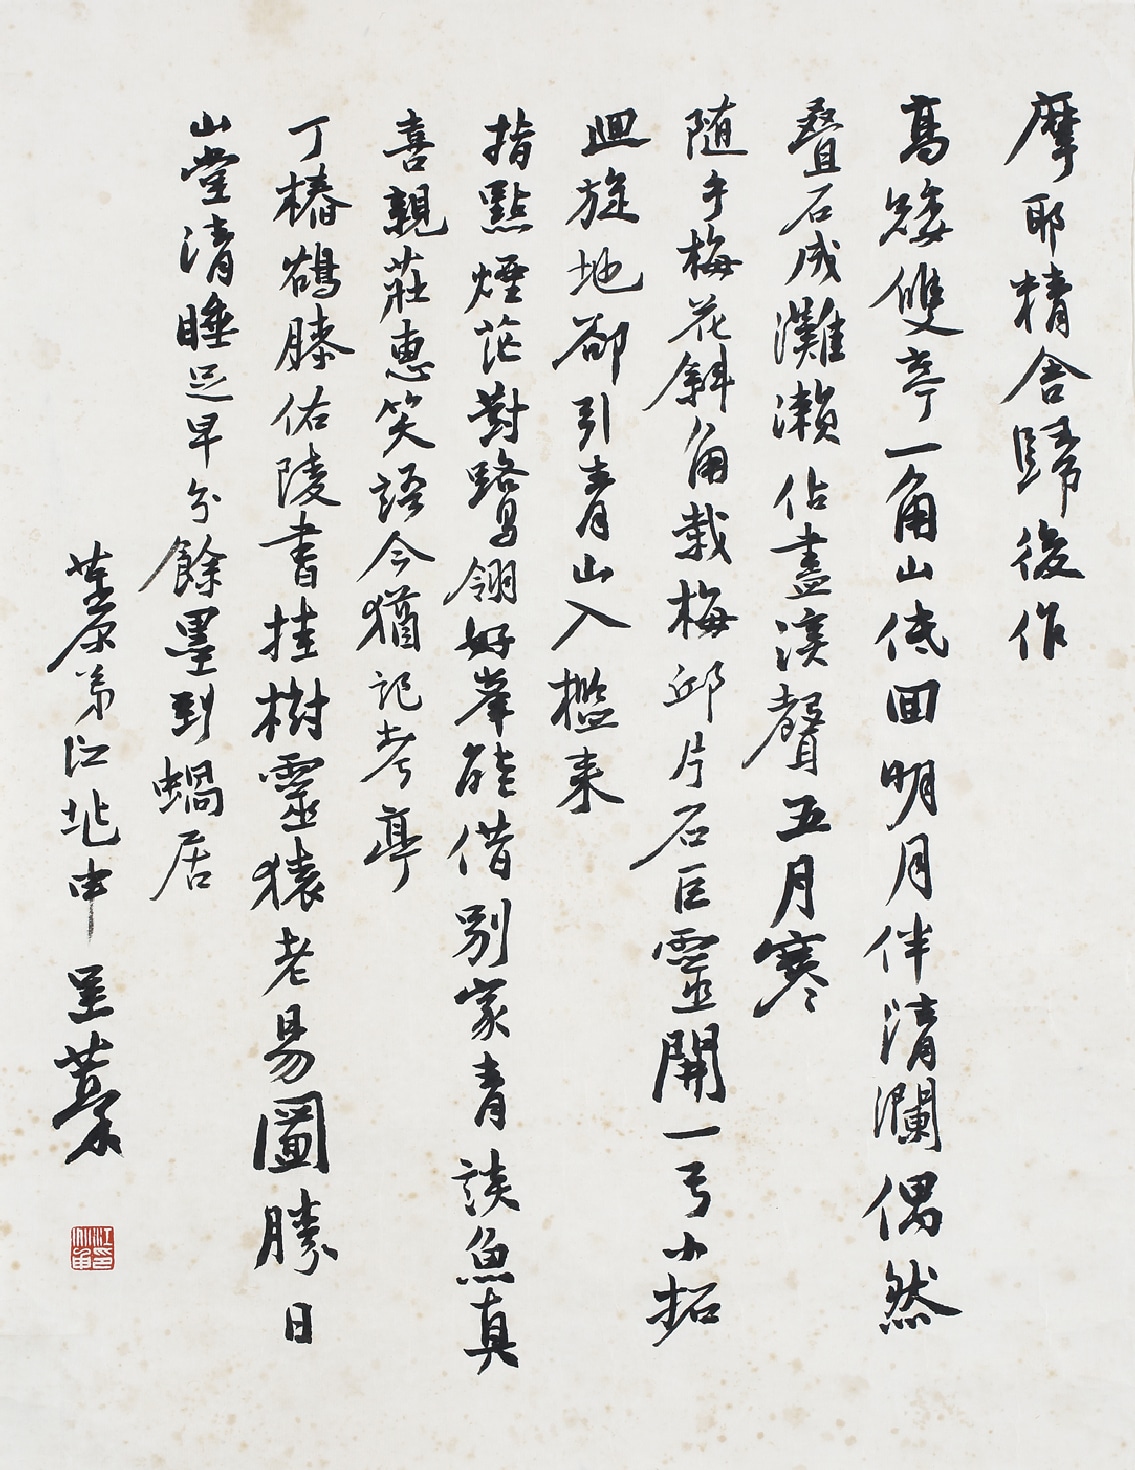 摩耶精舍歸後作
高矮雙亭一角山低回明月伴清瀾偶然
疊石成灘瀨佔盡溪聲五月寒
隨手梅花斜角栽梅邱片石巨靈開一弓小拓
迴旋地卻引青山入檻來
指點煙茫對鷺翎好峯能借別家青談魚真
喜親莊惠笑語今猶記考亭
丁椿鶴膝佑陵書挂樹靈猿老易圖勝日
山堂清睡足早分餘墨到蝸居
茮原弟江兆申呈藁
江兆申印